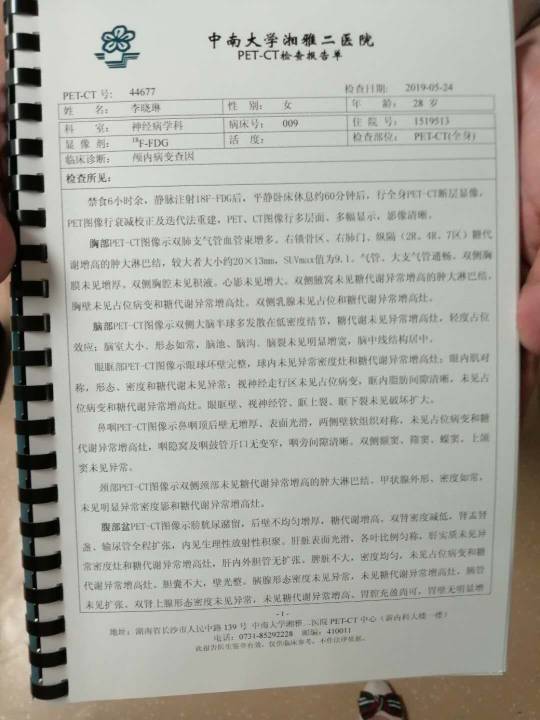 中南大学湘雅二医院
PET-CT检查报告单
PET-CT 号: 44677 检查日期: 2019-05-24
姓 名: 李晓琳 性 别: 女 年 龄: 28 岁
科 室: 神经病学科 病床号: 009 住 院 号: 1519513
显 像 剂: 18F-FDG 活 度: 检查部位: PET-CT(全身)
临床诊断: 颅内病变查因
检查所见:
禁食6小时余，静脉注射18F-FDG后，平静卧床休息约60分钟后，行全身PET-CT断层显像，
PET图像行衰减校正及迭代法重建，PET、CT图像行多层面、多幅显示，影像清晰。
胸部PET-CT图像示双肺支气管血管束增多。右锁骨区、右肺门、纵隔（2R、4R、7区）糖代
谢增高的肿大淋巴结，较大者大小约20×13mm，SUVmax值为9.1。气管、大支气管通畅。双侧胸
膜未见增厚。双侧胸腔未见积液。心影未见增大。双侧腋窝未见糖代谢异常增高的肿大淋巴结。
胸壁未见占位病变和糖代谢异常增高灶。双侧乳腺未见占位和糖代谢异常增高灶。
脑部PET-CT图像示双侧大脑半球多发散在低密度结节，糖代谢未见异常增高灶，轻度占位
效应；脑室大小、形态如常，脑池、脑沟、脑裂未见明显增宽，脑中线结构居中。
眼眶部PET-CT图像示眼球环壁完整，球内未见异常密度灶和糖代谢异常增高灶；眼内肌对
称，形态、密度和糖代谢未见异常；视神经走行区未见占位病变，眶内脂肪间隙清晰，未见占
位病变和糖代谢异常增高灶。眼眶壁、视神经管、眶上裂、眶下裂未见破坏扩大。
鼻咽PET-CT图像示鼻咽顶后壁无增厚、表面光滑，两侧壁软组织对称，未见占位病变和糖
代谢异常增高灶，咽隐窝及咽鼓管开口无变窄，咽旁间隙清晰。双侧额窦、筛窦、蝶窦、上颌
窦未见异常。
颈部PET-CT图像示双侧颈部未见糖代谢异常增高的肿大淋巴结。甲状腺外形、密度如常，
未见明显异常密度影和糖代谢异常增高灶。
腹部盆PET-CT图像示膀胱尿潴留，后壁不均匀增厚，糖代谢增高，双肾密度减低，肾盂肾
盏、输尿管全程扩张，内见生理性放射性积聚。肝脏表面光滑，各叶比例匀称，肝实质未见异
常密度灶和糖代谢异常增高灶，肝内外胆管无扩张。脾脏不大，密度均匀，未见占位病变和糖
代谢异常增高灶。胆囊不大，壁光整。胰腺形态密度未见异常，未见糖代谢异常增高灶，胰管
未见扩张。双肾上腺形态密度未见异常，未见糖代谢异常增高。胃腔充盈尚可，胃壁无明显增
- 1 -
地址: 湖南省长沙市人民中路 139 号 中南大学湘雅二医院 PET-CT 中心（新内科大楼一楼）
电话: 0731-85292228 邮编: 410011
此报告医生签章有效，仅供临床参考，不作法律依据。